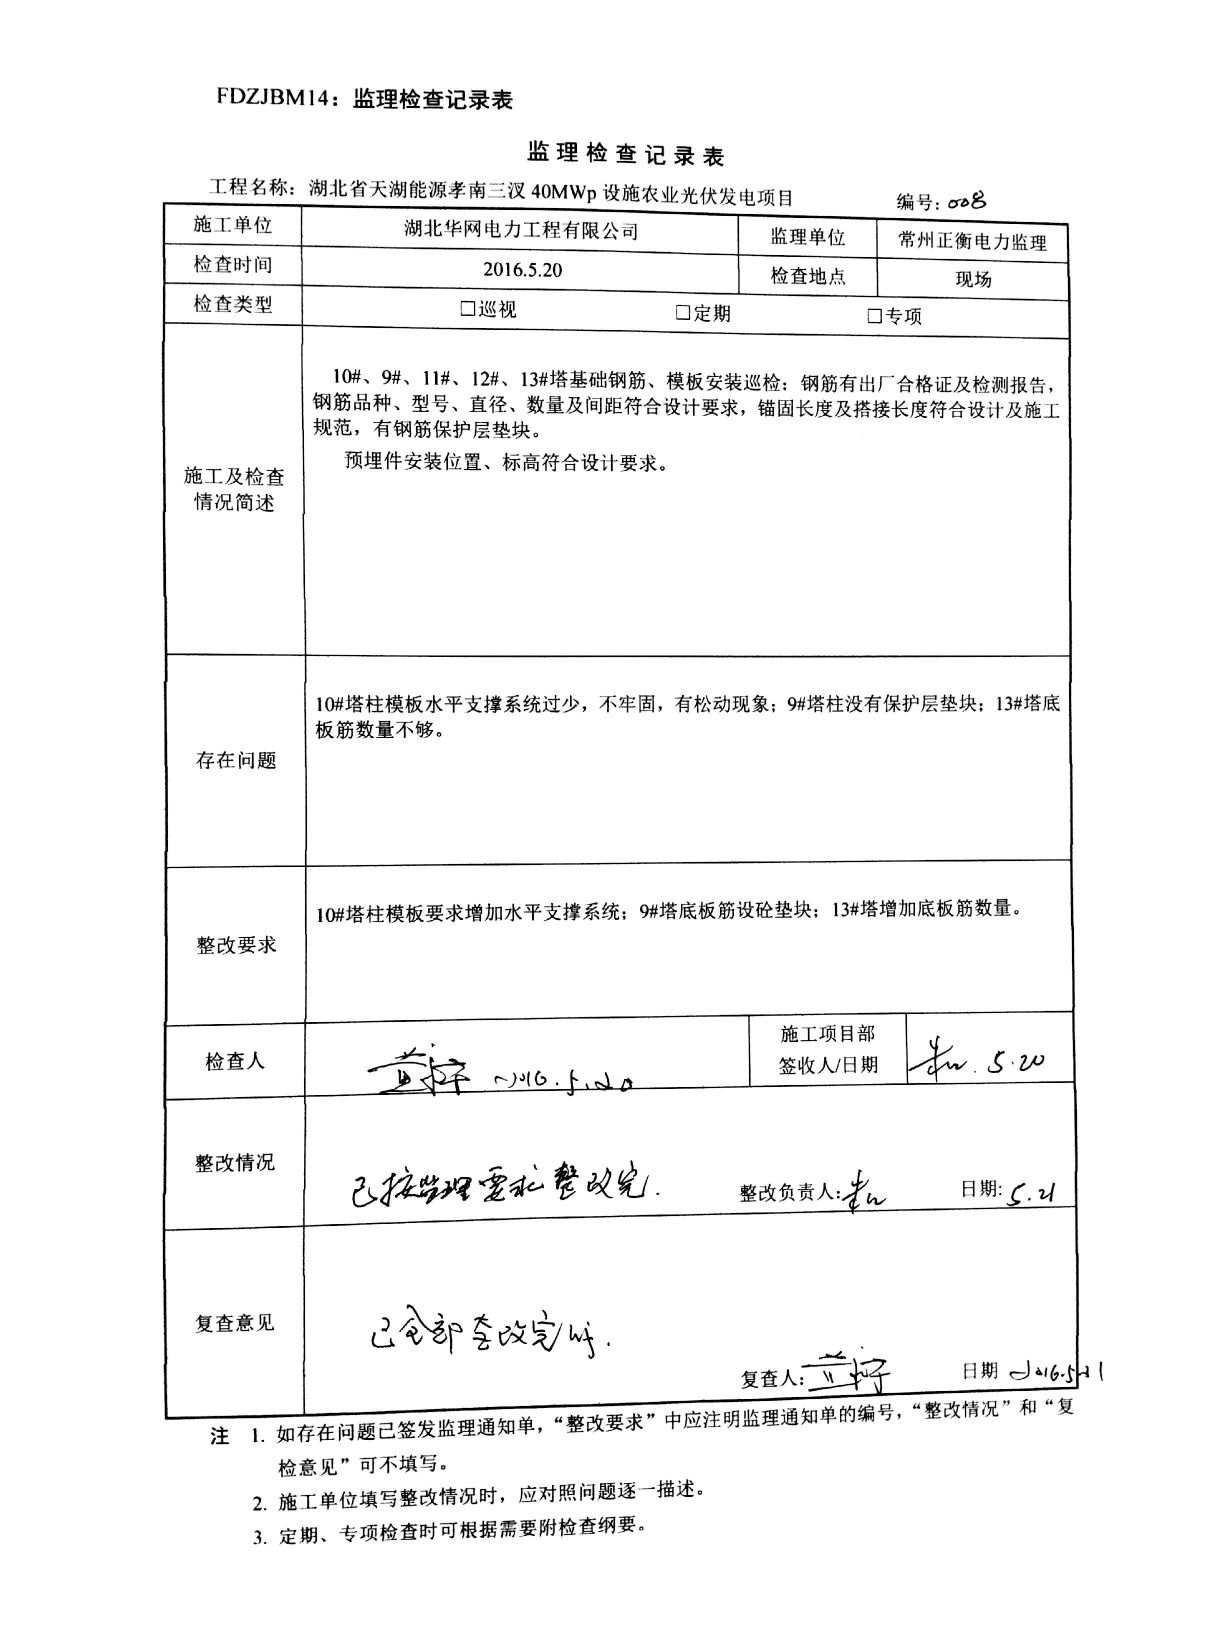 FDZJBM14：监理检查记录表
监理检查记录表
工程名称：湖北省天湖能源孝南三汊 40MWp 设施农业光伏发电项目 编号：008
施工单位 湖北华网电力工程有限公司 监理单位 常州正衡电力监理
检查时间 2016.5.20 检查地点 现场
检查类型 □巡视 □定期 □专项
10#、9#、11#、12#、13#塔基础钢筋、模板安装巡检：钢筋有出厂合格证及检测报告，
钢筋品种、型号、直径、数量及间距符合设计要求，锚固长度及搭接长度符合设计及施工
规范，有钢筋保护层垫块。
预埋件安装位置、标高符合设计要求。
施工及检查
情况简述
10#塔柱模板水平支撑系统过少，不牢固，有松动现象；9#塔柱没有保护层垫块；13#塔底
板筋数量不够。
存在问题
10#塔柱模板要求增加水平支撑系统；9#塔底板筋设砼垫块；13#塔增加底板筋数量。
整改要求
检查人 2016.5.20 施工项目部
签收人/日期 5.20
整改情况 已按监理要求整改完. 整改负责人: 日期: 5.21
复查意见 已全部整改完
复查人: 日期 2016.5.21
注 1. 如存在问题已签发监理通知单，“整改要求”中应注明监理通知单的编号，“整改情况”和“复
检意见”可不填写。
2. 施工单位填写整改情况时，应对照问题逐一描述。
3. 定期、专项检查时可根据需要附检查纲要。